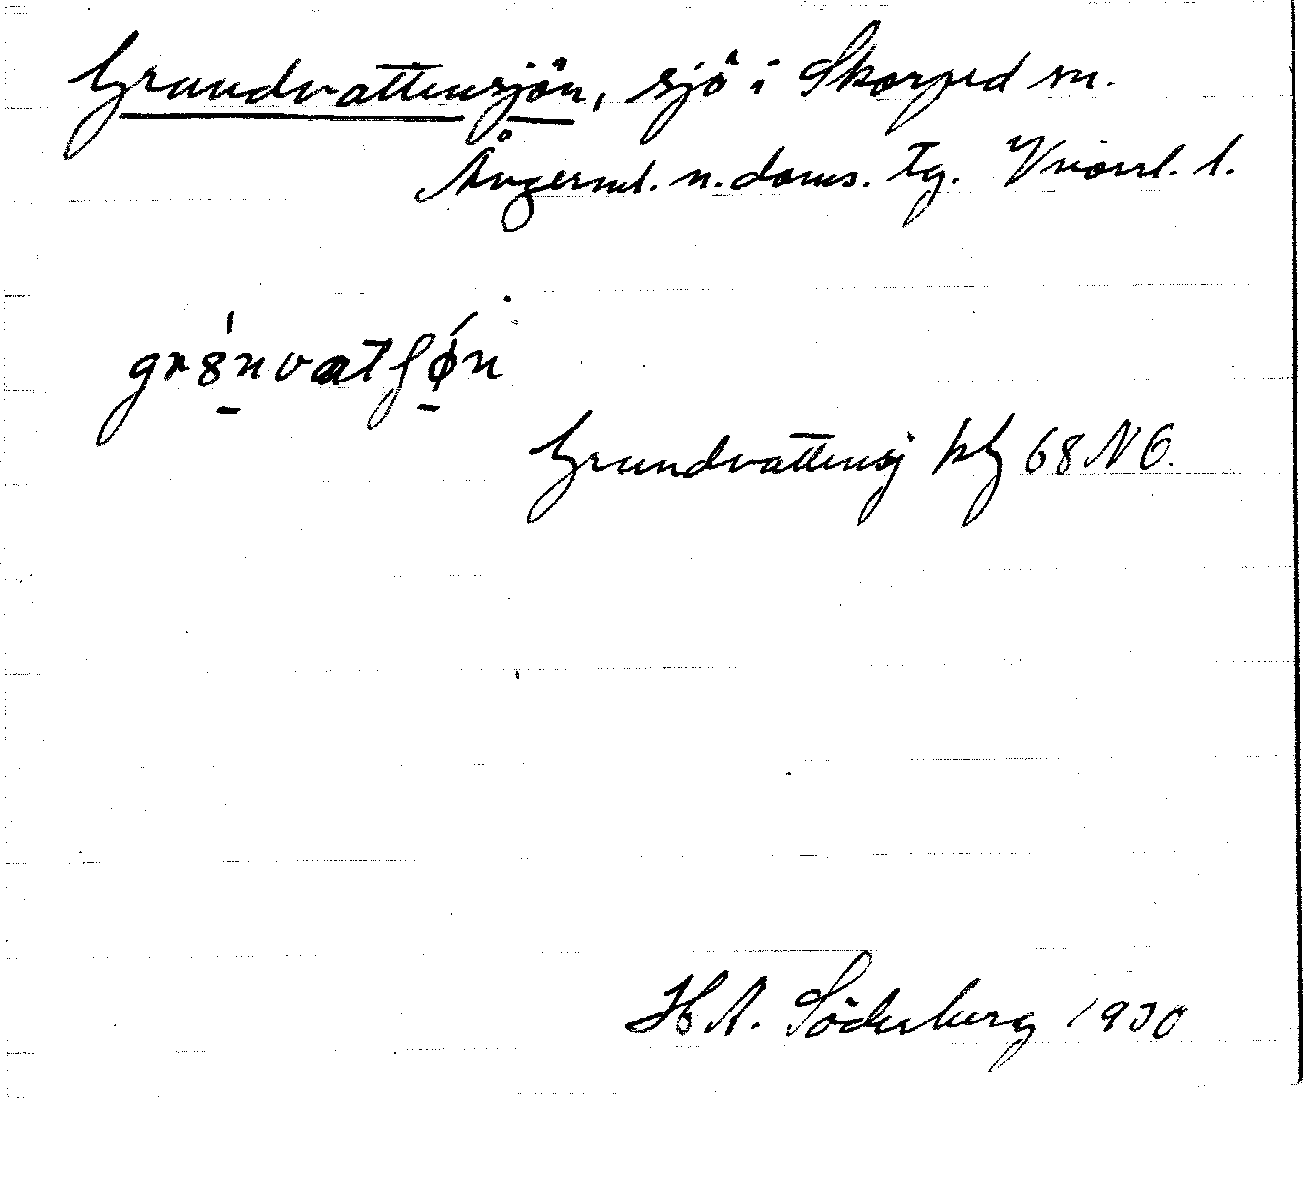 Grundvattensjön, sjö i Skorped sn.
Ångerml. n. doms. tg. Vnorrl. l.
Grundvattensj kbl 68 NO.
H A. Söderberg 1930